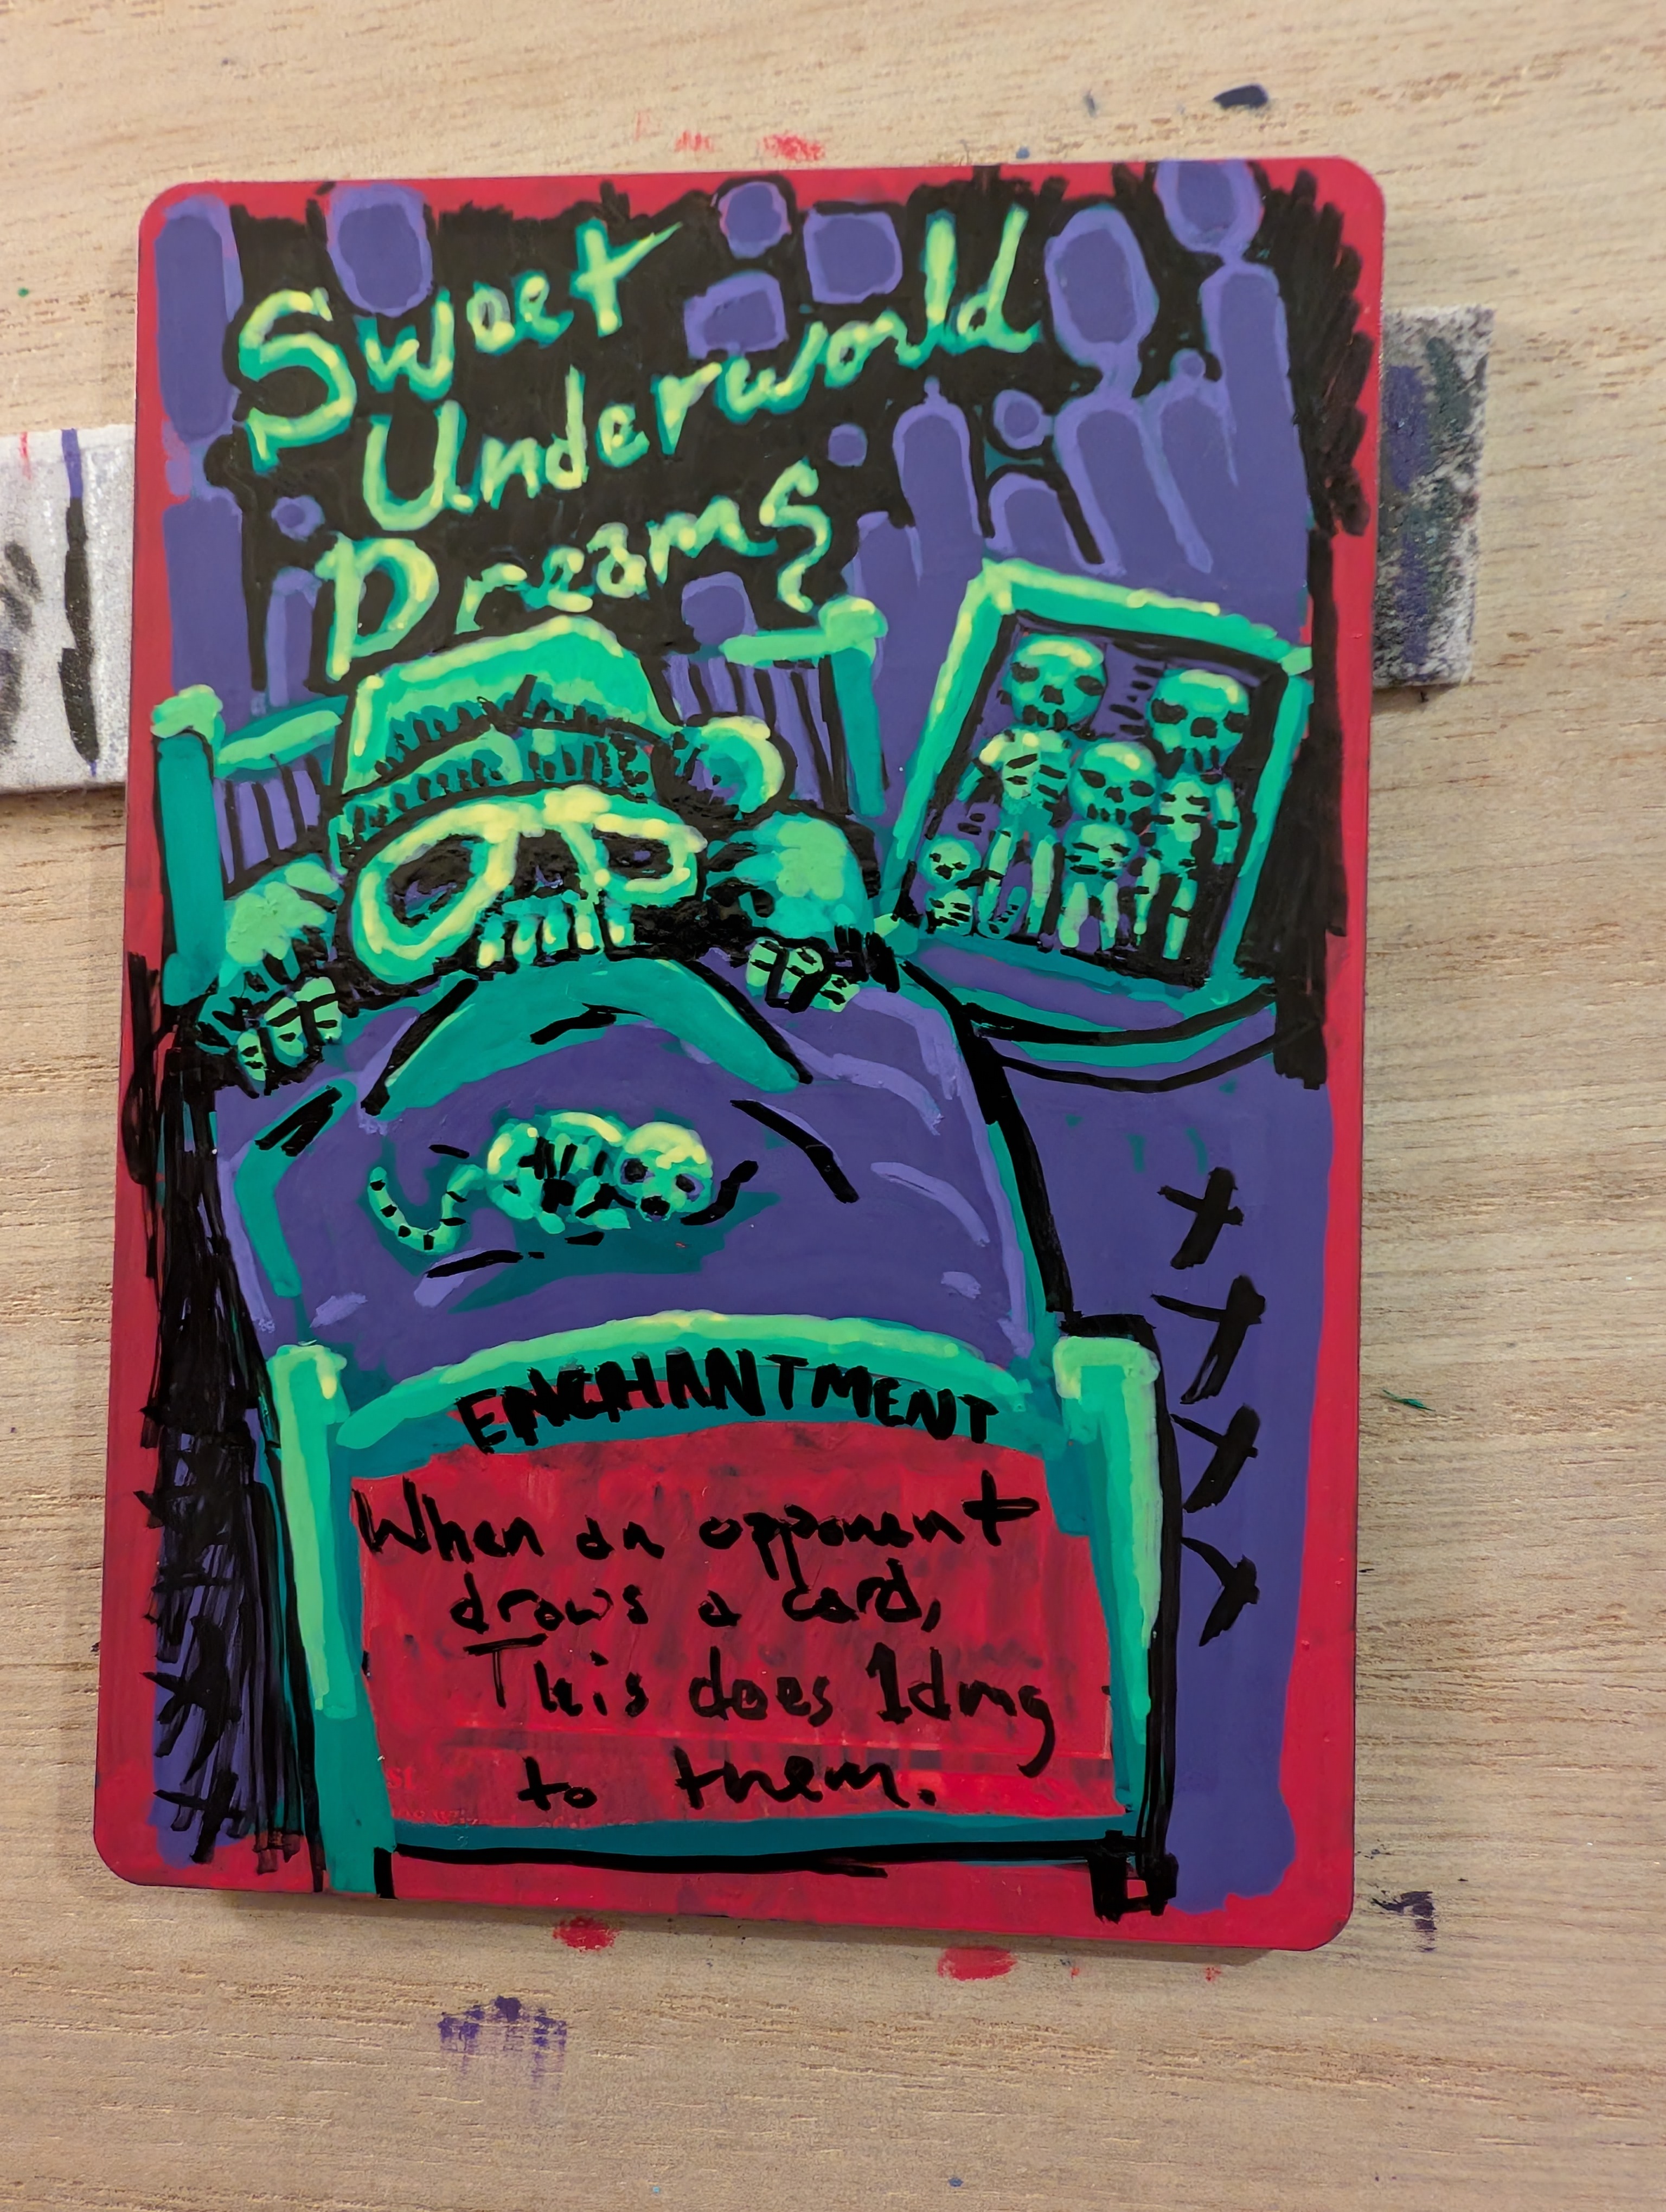 Sweet
Underworld
Dreams
ENCHANTMENT
When an opponent
draws a card,
This does 1dmg
to them.
st